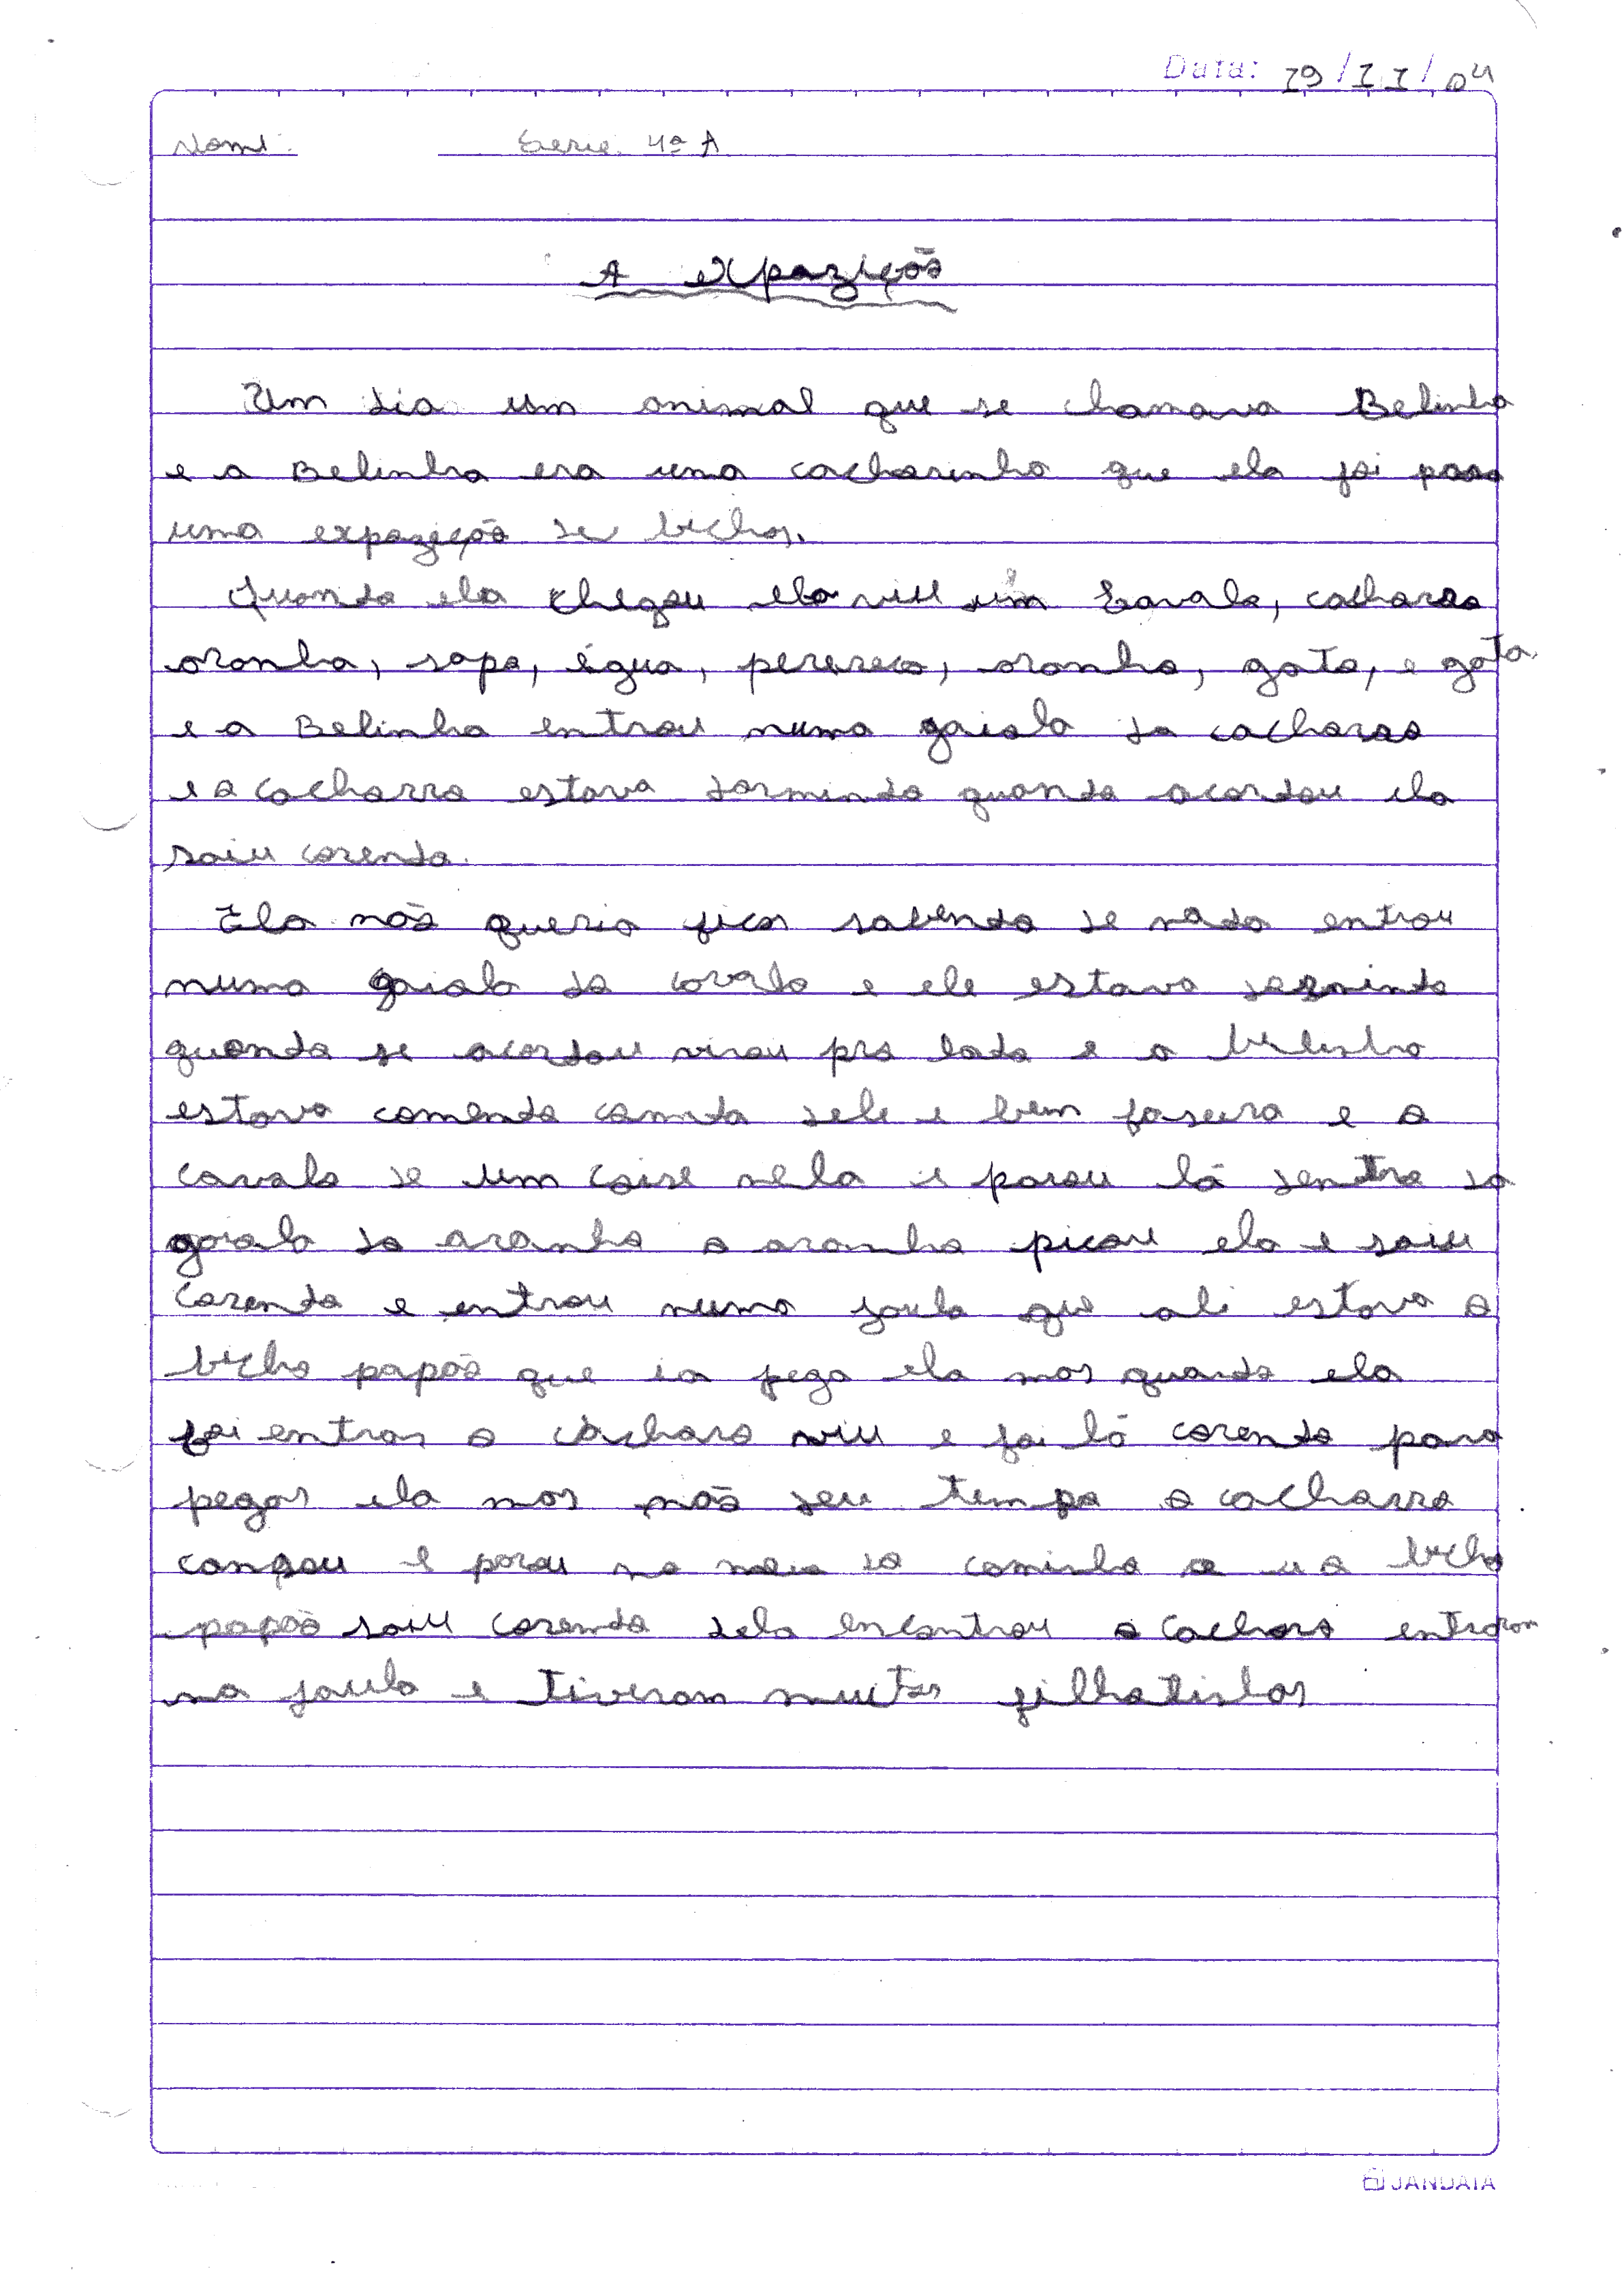 Data: 19/11/04
Nome: Serie: 4ª A
A expozição
Um dia um animal que se chamava Belinha
e a Belinha era uma cachorinha que ela foi para
uma expozição de bichos.
Quando ela chegou ela viu um Cavalo, cachorro
aranha, sapo, égua, perereca, aranha, gato, e gata.
e a Belinha entrou numa gaiola do cachorro
e o cachorro estava dormindo quando acordou ela
saiu corendo.
Ela não queria ficar sabendo de nada entrou
numa gaiola do cavalo e ele estava dormindo
quando se acordou virou pro lado e a belinha
estava comendo comida dele e bem faseira e o
cavalo de um coise nela e parou lá dentro da
gaiola da aranha a aranha picou ela e saiu
corendo e entrou numa jaula que ali estava o
bicho papão que ia pega ela mas quando ela
foi entrar o cachoro viu e foi lá corendo para
pegar ela mas não deu tempo o cachorro
cançou e parou no meio do caminho e o bicho
papão saiu corendo dela encontrou o cachoro entraram
na jaula e tiveram muitos filhotinhos
JANDAIA